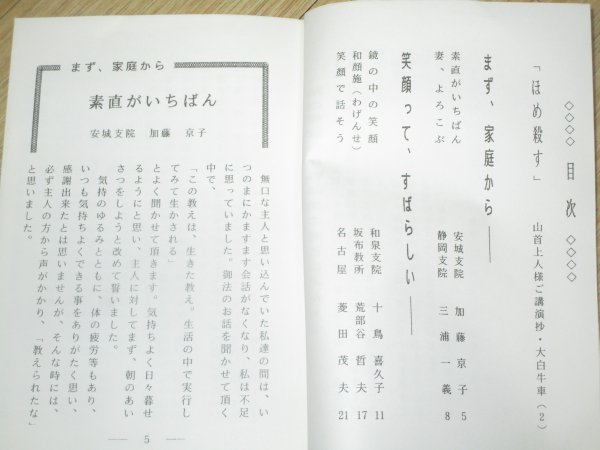 ◇◇◇◇ 目次 ◇◇◇◇
「ほめ殺す」 山首上人様ご講演抄・大白牛車(2)
まず、家庭から――
素直がいちばん 安城支院 加藤京子 5
妻、よろこぶ 静岡支院 三浦一義 8
笑顔って、すばらしい――
鏡の中の笑顔 和泉支院 十鳥喜久子 11
和顔施(わげんせ) 坂布教所 荒部谷哲夫 17
笑顔で話そう 名古屋 菱田茂夫 21
まず、家庭から
素直がいちばん
安城支院 加藤京子
無口な主人と思い込んでいた私達の間は、い
つのまにかますます会話がなくなり、私は不足
に思っていました。御法のお話を聞かせて頂く
中で、
「この教えは、生きた教え。生活の中で実行し
てみて生かされる」
とよく聞かせて頂きます。気持ちよく日々暮せ
るようにと思い、主人に対してまず、朝のあい
さつをしようと改めて誓いました。
気持のゆるみとともに、体の疲労等もあり、
いつも気持ちよくできる事をありがたく思い、
感謝出来たとは思いませんが、そんな時には、
必ず主人の方から声がかかり、「教えられたな」
と思いました。
― 5 ―